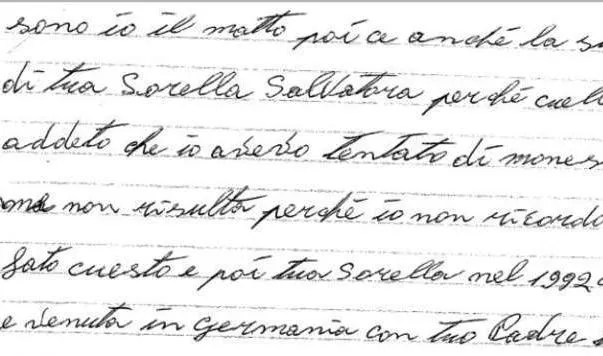 sono io il matto poi ce anche la s
di tua Sorella Salvatora perché cuel
addeto che io avevo tentato di mones
ma non risulta perché io non ricordo
fato cuesto e poi tua sorella nel 1992
e venuta in germania con tuo Padre